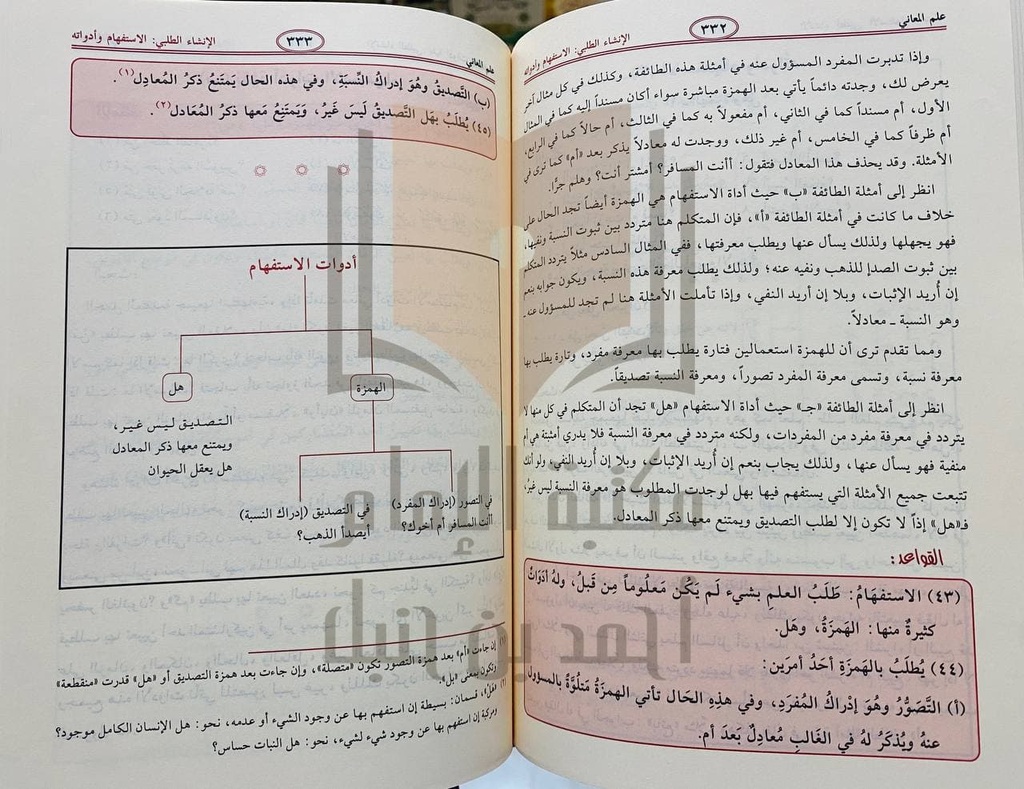 علم المعاني
٣٣٢
الإنشاء الطلبي: الاستفهام وأدواته
وإذا تدبرت المفرد المسؤول عنه في أمثلة هذه الطائفة، وكذلك في كل مثال آخر
يعرض لك، وجدته دائماً يأتي بعد الهمزة مباشرة سواء أكان مسنداً إليه كما في المثال
الأول، أم مسنداً كما في الثاني، أم مفعولاً به كما في الثالث، أم حالاً كما في الرابع،
أم ظرفاً كما في الخامس، أم غير ذلك، ووجدت له معادلاً يذكر بعد «أم» كما ترى في
الأمثلة. وقد يحذف هذا المعادل فتقول: أأنت المسافر؟ أمشتر أنت؟ وهلم جرًّا.
انظر إلى أمثلة الطائفة «ب» حيث أداة الاستفهام هي الهمزة أيضاً تجد الحال على
خلاف ما كانت في أمثلة الطائفة «أ»، فإن المتكلم هنا متردد بين ثبوت النسبة ونفيها،
فهو يجهلها ولذلك يسأل عنها ويطلب معرفتها، ففي المثال السادس مثلاً يتردد المتكلم
بين ثبوت الصدإ للذهب ونفيه عنه؛ ولذلك يطلب معرفة هذه النسبة، ويكون جوابه بنعم
إن أُريد الإثبات، وبلا إن أريد النفي، وإذا تأملت الأمثلة هنا لم تجد للمسؤول عنه ـ
وهو النسبة ـ معادلاً.
ومما تقدم ترى أن للهمزة استعمالين فتارة يطلب بها معرفة مفرد، وتارة يطلب بها
معرفة نسبة، وتسمى معرفة المفرد تصوراً، ومعرفة النسبة تصديقاً.
انظر إلى أمثلة الطائفة «جـ» حيث أداة الاستفهام «هل» تجد أن المتكلم في كل منها لا
يتردد في معرفة مفرد من المفردات، ولكنه متردد في معرفة النسبة فلا يدري أمثبتة هي أم
منفية فهو يسأل عنها، ولذلك يجاب بنعم إن أُريد الإثبات، وبلا إن أُريد النفي، ولو أنك
تتبعت جميع الأمثلة التي يستفهم فيها بهل لوجدت المطلوب هو معرفة النسبة ليس غير،
فـ«هل» إذاً لا تكون إلا لطلب التصديق ويمتنع معها ذكر المعادل.
القواعد:
(٤٣) الاستفهَامُ: طَلَبُ العلمِ بشيء لَم يَكُن مَعلُوماً مِن قَبلُ، ولهُ أدَوَاتٌ
كثيرةٌ منها: الهَمزَةُ، وهَل.
(٤٤) يُطلَبُ بالهَمزَةِ أحَدُ أمرَين:
(أ) التَّصَوُّرُ وهُوَ إدراكُ المُفرَدِ، وفي هذِهِ الحَال تأتي الهَمزةُ مَتلُوَّةً بالمسؤول
عنهُ ويُذكَرُ لهُ في الغَالبِ مُعادِلٌ بَعدَ أم.
علم المعاني
٣٣٣
الإنشاء الطلبي: الاستفهام وأدواته
(ب) التَّصديقُ وهُوَ إدراكُ النِّسبَةِ، وفي هذه الحَال يَمتَنعُ ذكرُ المُعادِل(١).
(٤٥) يُطلَبُ بهَل التَّصديقُ لَيسَ غَيرُ، وَيَمتَنِعُ مَعها ذكرُ المُعَادل(٢).
أدوات الاستفهام
الهمزة
هل
التـصـديـق لـيـس غـيـر،
ويمتنع معها ذكر المعادل
هل يعقل الحيوان
في التصور (إدراك المفرد)
أأنت المسافر أم أخوك؟
في التصديق (إدراك النسبة)
أيصدأ الذهب؟
(١) إن جاءت «أم» بعد همزة التصور تكون «متصلة»، وإن جاءت بعد همزة التصديق أو «هل» قدرت «منقطعة»
وتكون بمعنى «بل».
(٢) «هل» قسمان: بسيطة إن استفهم بها عن وجود الشيء أو عدمه، نحو: هل الإنسان الكامل موجود؟
ومركبة إن استفهم بها عن وجود شيء لشيء، نحو: هل النبات حساس؟
مكتبة الإمام
أحمد بن حنبل